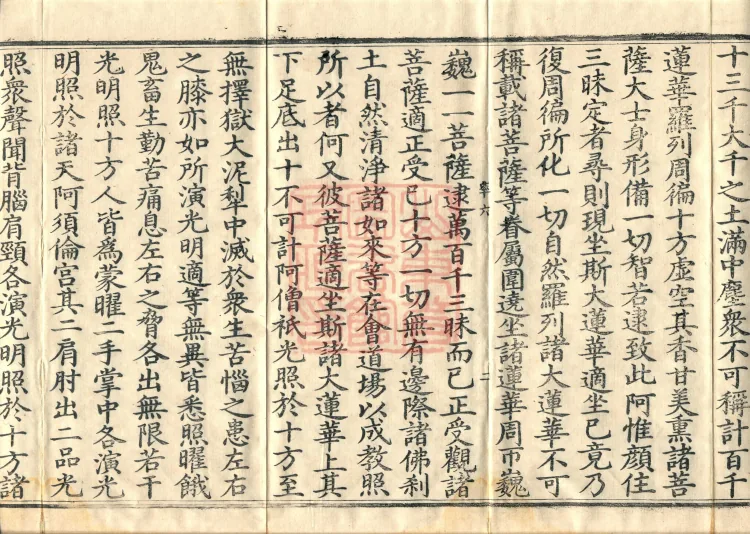 十三千大千之土滿中塵衆不可稱計百千
蓮華羅列周徧十方虛空其香甘美熏諸菩
薩大士身形備一切智若逮致此阿惟顏住
三昧定者尋則現坐斯大蓮華適坐已竟乃
復周徧所化一切自然羅列諸大蓮華不可
稱載諸菩薩等眷屬圍遶坐諸蓮華周帀巍
巍一一菩薩逮萬百千三昧而已正受觀諸
菩薩適正受已十方一切無有邊際諸佛刹
土自然清淨諸如來等在會道場以成教照
所以者何又彼菩薩適坐斯諸大蓮華上其
下足底出十不可計阿僧祇光照於十方至
無擇獄大泥犁中滅於衆生苦惱之患左右
之膝亦如所演光明適等無異皆悉照曜餓
鬼畜生勤苦痛息左右之脅各出無限若干
光明照十方人皆爲蒙曜二手掌中各演光
明照於諸天阿須倫宮其二肩肘出二品光
照衆聲聞背腦肩頸各演光明照於十方諸